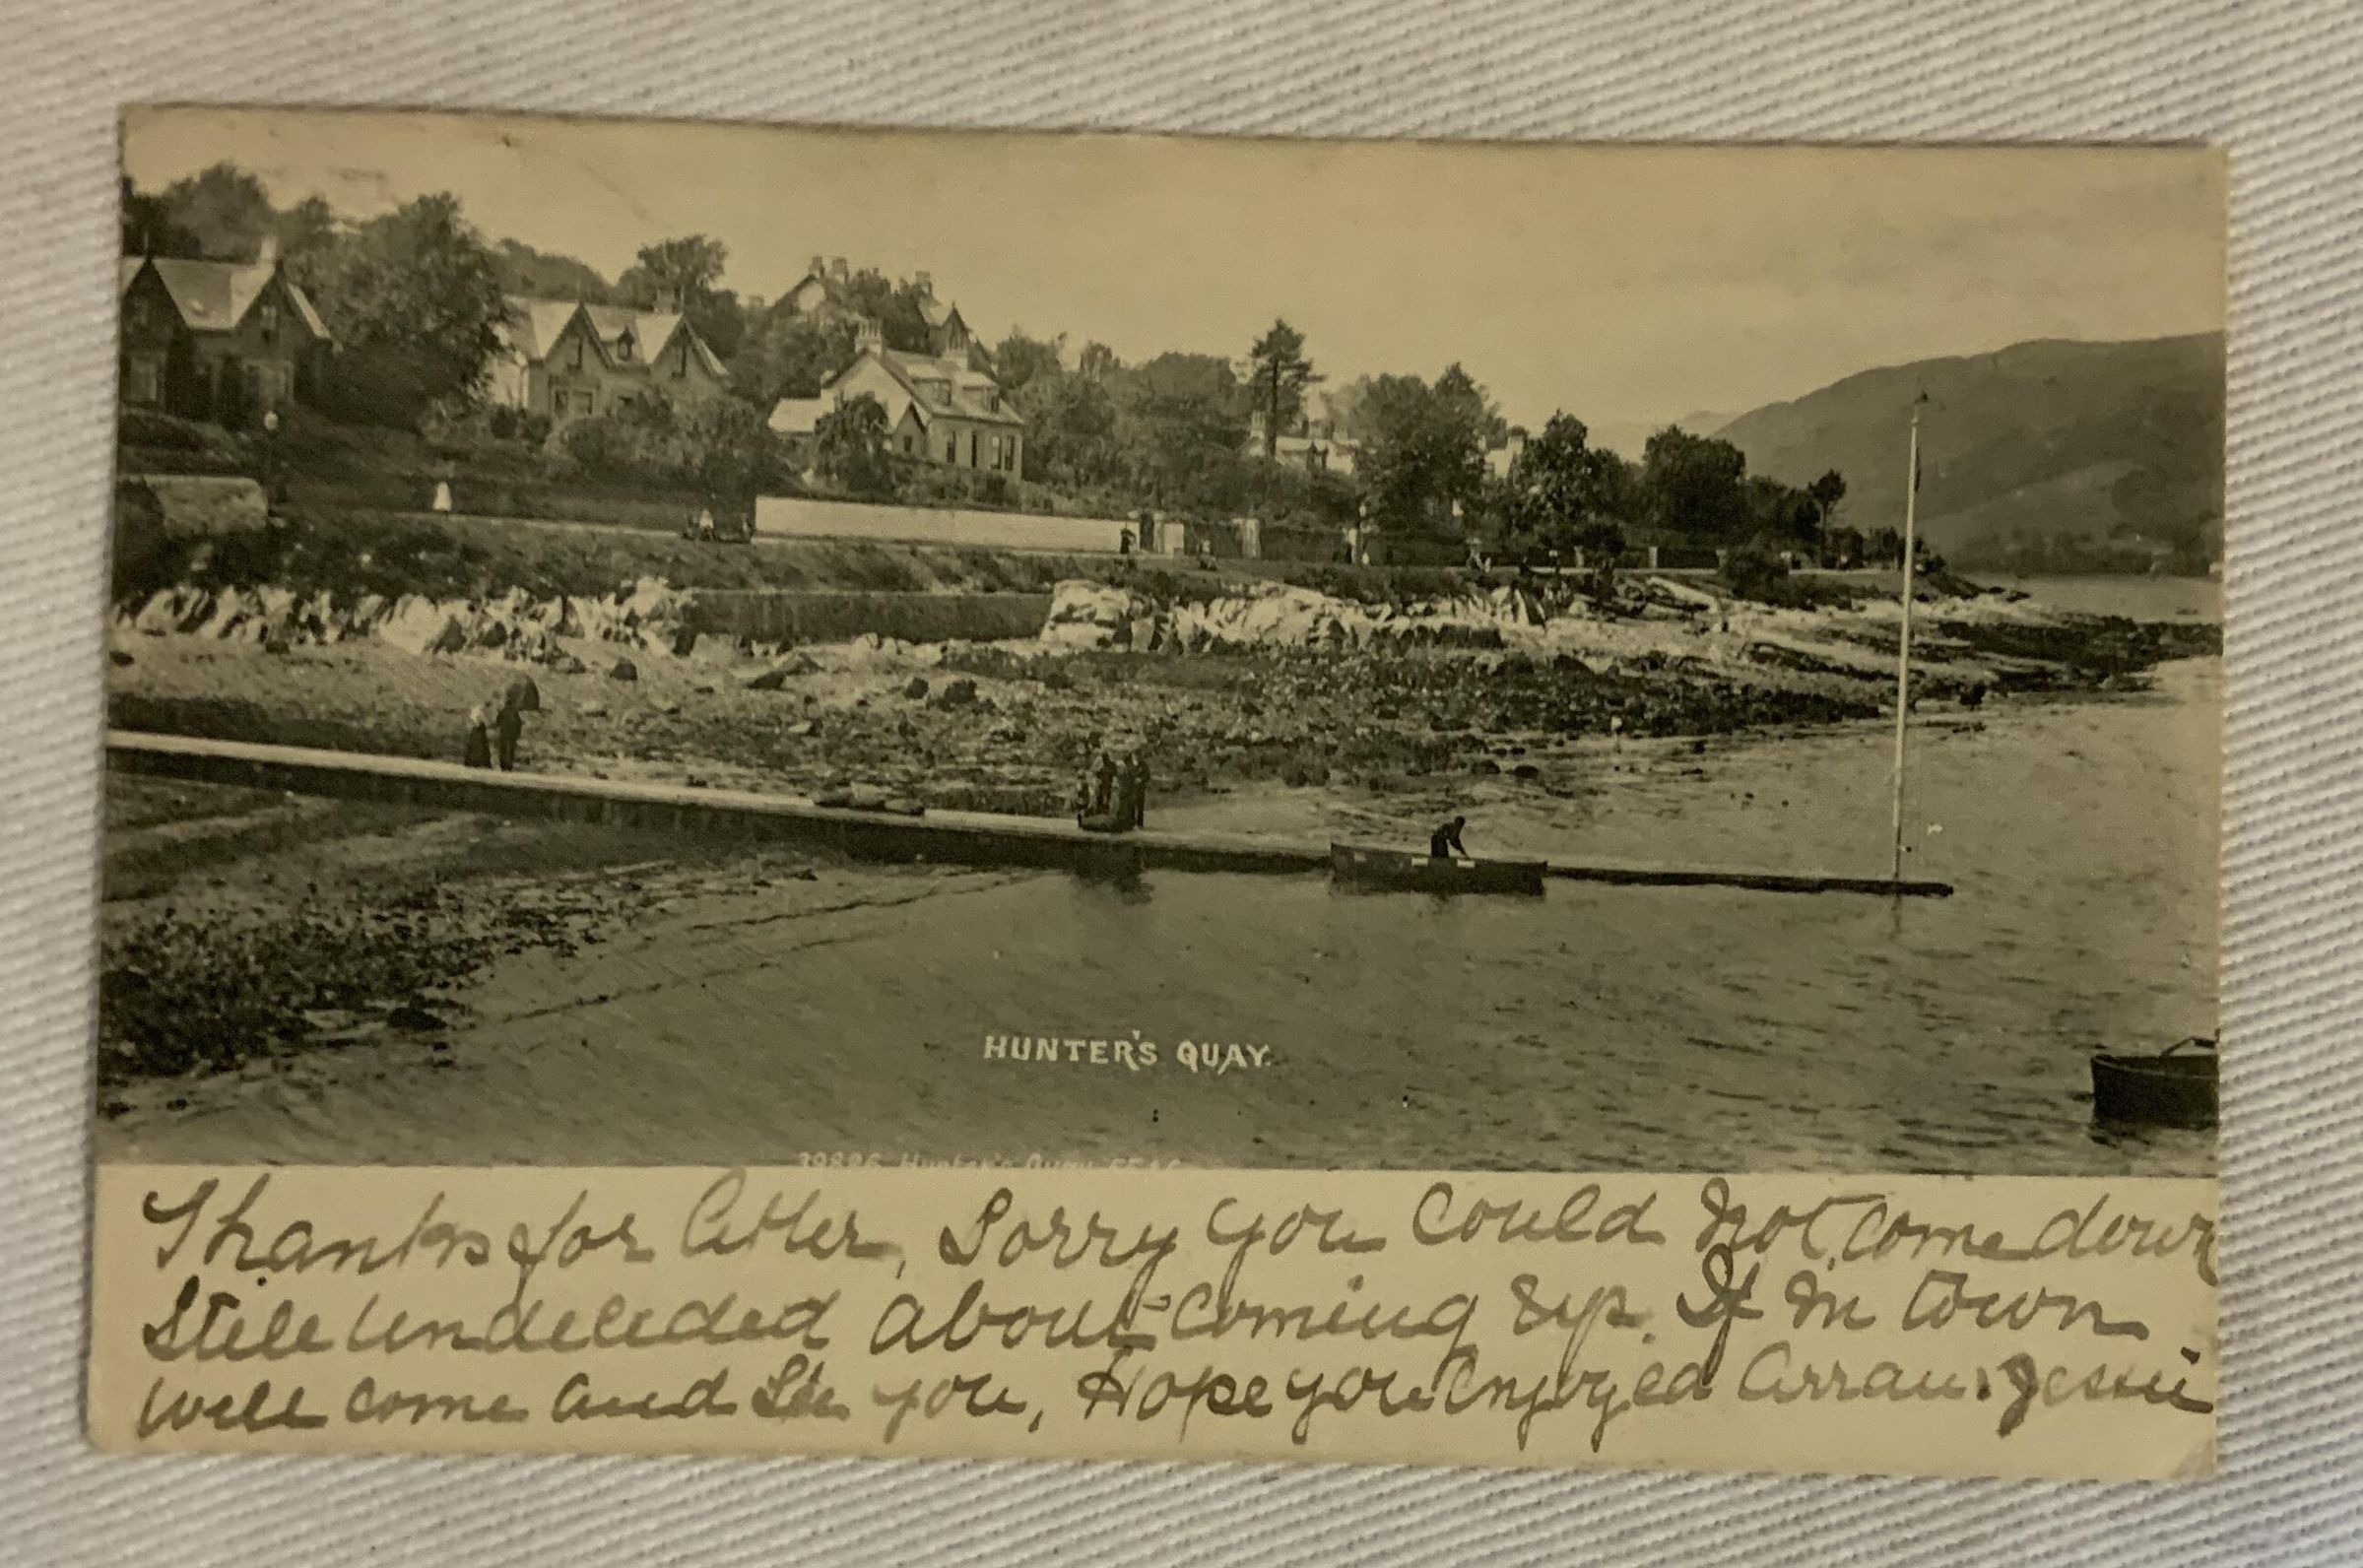 HUNTER'S QUAY.
Hunter's Quay
Thanks for letter, Sorry you could not come down
Still undecided about coming up. If in town
will come and see you, Hope you enjoyed Arran. Jessie